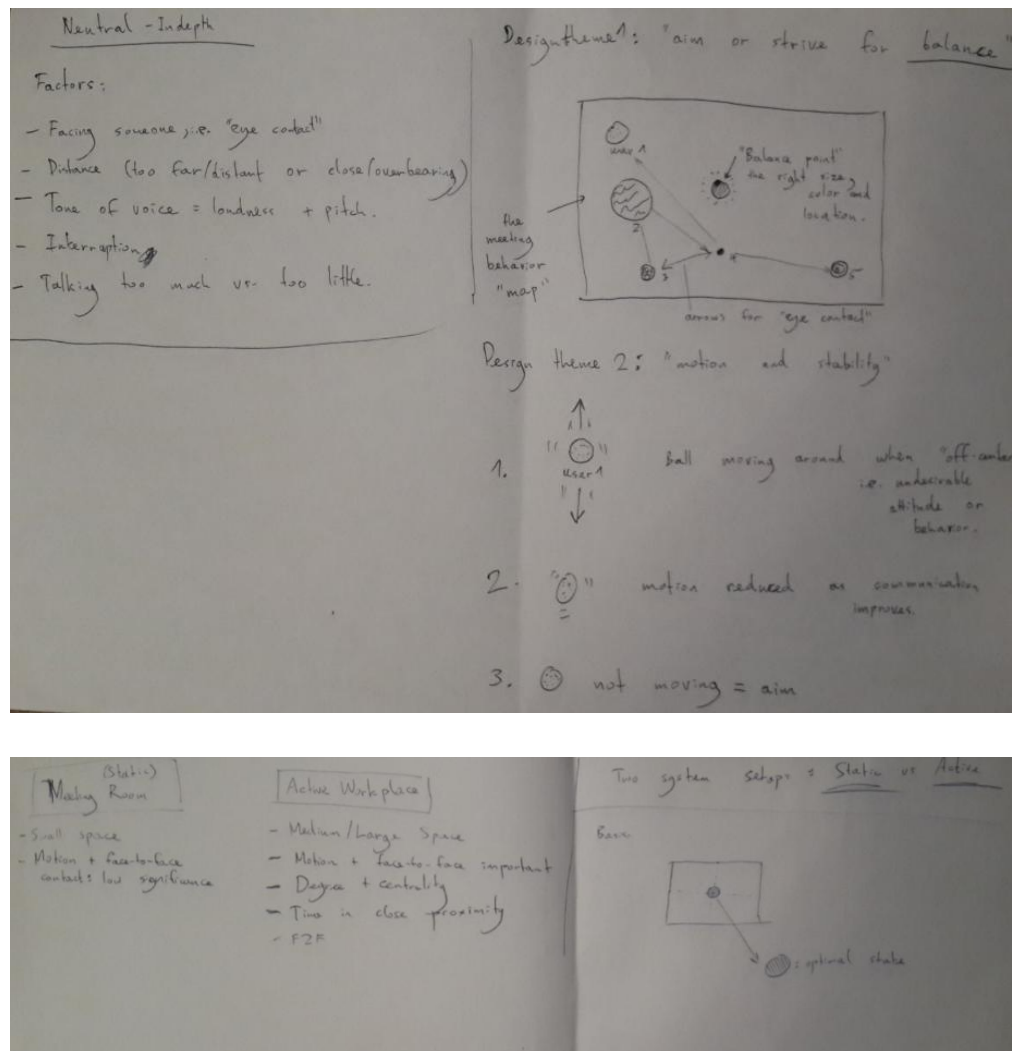 Neutral - Indepth
Factors:
- Facing someone, i.e. "eye contact"
- Distance (too far/distant or close/overbearing)
- Tone of voice = loudness + pitch.
- Interruption
- Talking too much vs. too little.
Design theme 1: "aim or strive for balance"
user 1
"Balance point"
the right size,
color and
location.
2
3
4
5
the
meeting
behavior
"map"
arrows for "eye contact"
Design theme 2: "motion and stability"
1.
user 1
Ball moving around when "off-center
i.e. undesirable
attitude or
behavior.
2. motion reduced as communication
improves.
3. not moving = aim
(Static)
Meeting Room
- Small space
- Motion + face-to-face
contact: low significance
Active Workplace
- Medium/Large Space
- Motion + face-to-face important
- Degree + centrality
- Time in close proximity
- F2F
Two system setups: Static vs Active
: optimal state